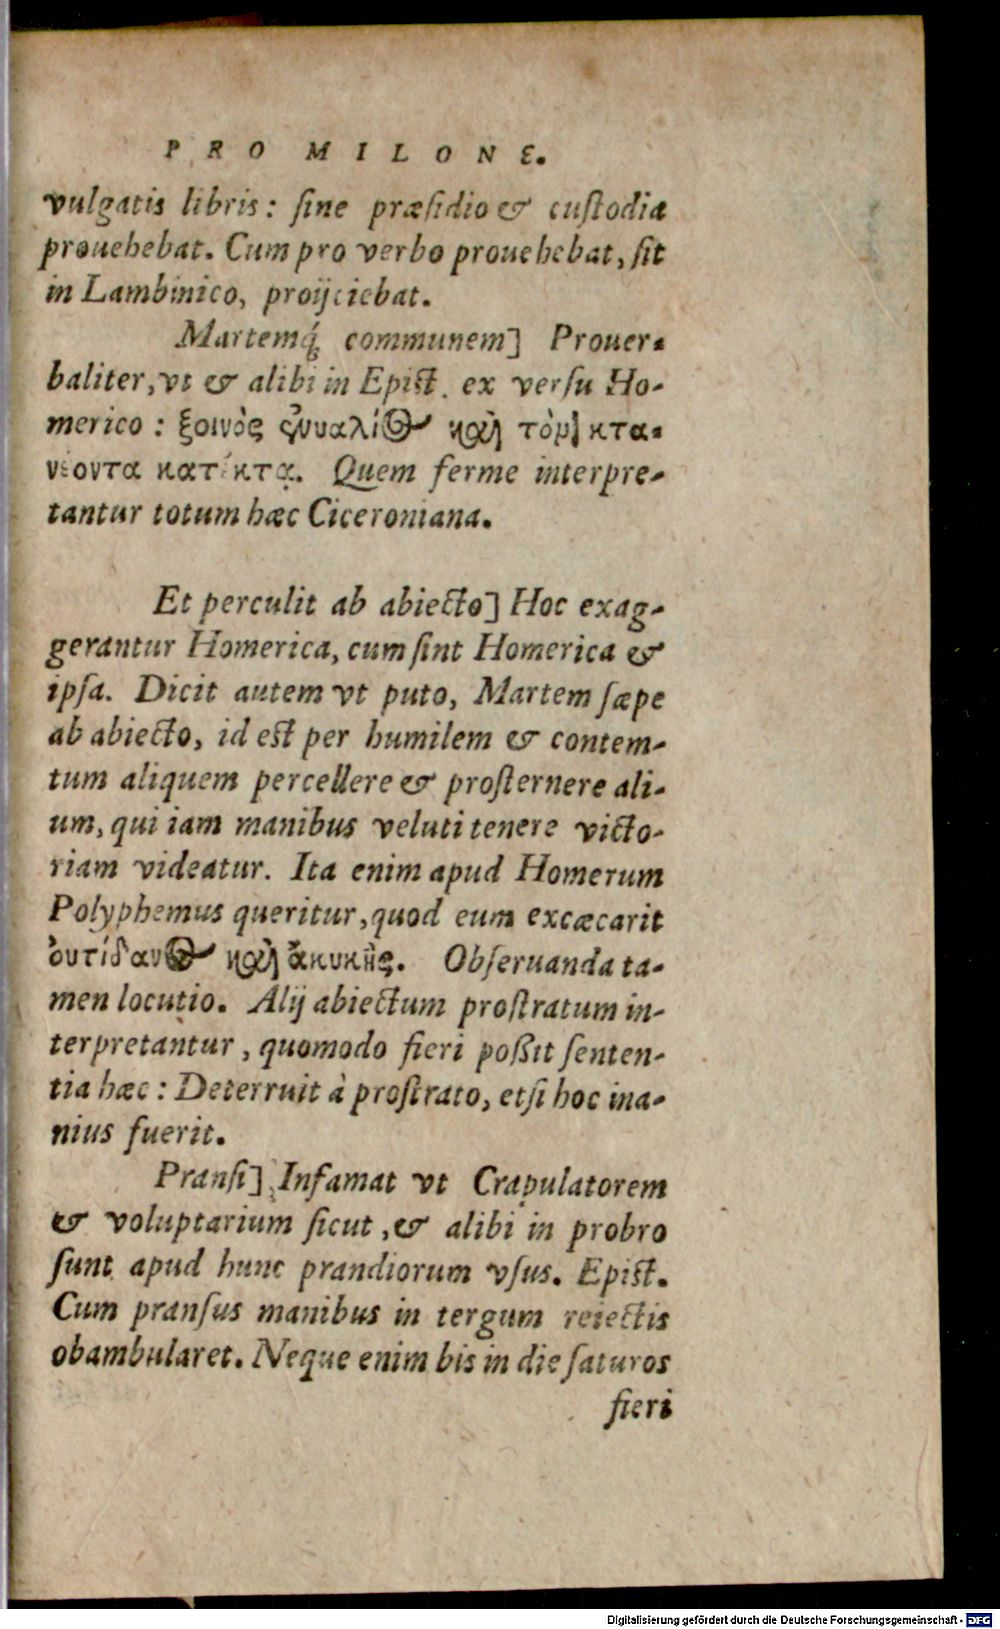 PRO MILONE.
vulgatis libris: sine præsidio & custodia
prouehebat. Cum pro verbo prouehebat, sit
in Lambinico, proijciebat.
Martemq́; communem] Prouer-
baliter, vt & alibi in Epist. ex versu Ho-
merico: ξοινὸς καὶ τὸμ κτα-
νέοντα κατέκτα. Quem ferme interpre-
tantur totum hæc Ciceroniana.
Et perculit ab abiecto] Hoc exag-
gerantur Homerica, cum sint Homerica &
ipsa. Dicit autem vt puto, Martem sæpe
ab abiecto, id est per humilem & contem-
tum aliquem percellere & prosternere ali-
um, qui iam manibus veluti tenere victo-
riam videatur. Ita enim apud Homerum
Polyphemus queritur, quod eum excæcarit
ὀυτίδανος καὶ ἄκυκης. Obseruanda ta-
men locutio. Alij abiectum prostratum in-
terpretantur, quomodo fieri poßit senten-
tia hæc: Deterruit à prostrato, etsi hoc ina-
nius fuerit.
Pransi] Infamat vt Crapulatorem
& voluptarium sicut, & alibi in probro
sunt apud hunc prandiorum vsus. Epist.
Cum pransus manibus in tergum reiectis
obambularet. Neque enim bis in die saturos
fieri
Digitalisierung gefördert durch die Deutsche Forschungsgemeinschaft - DFG